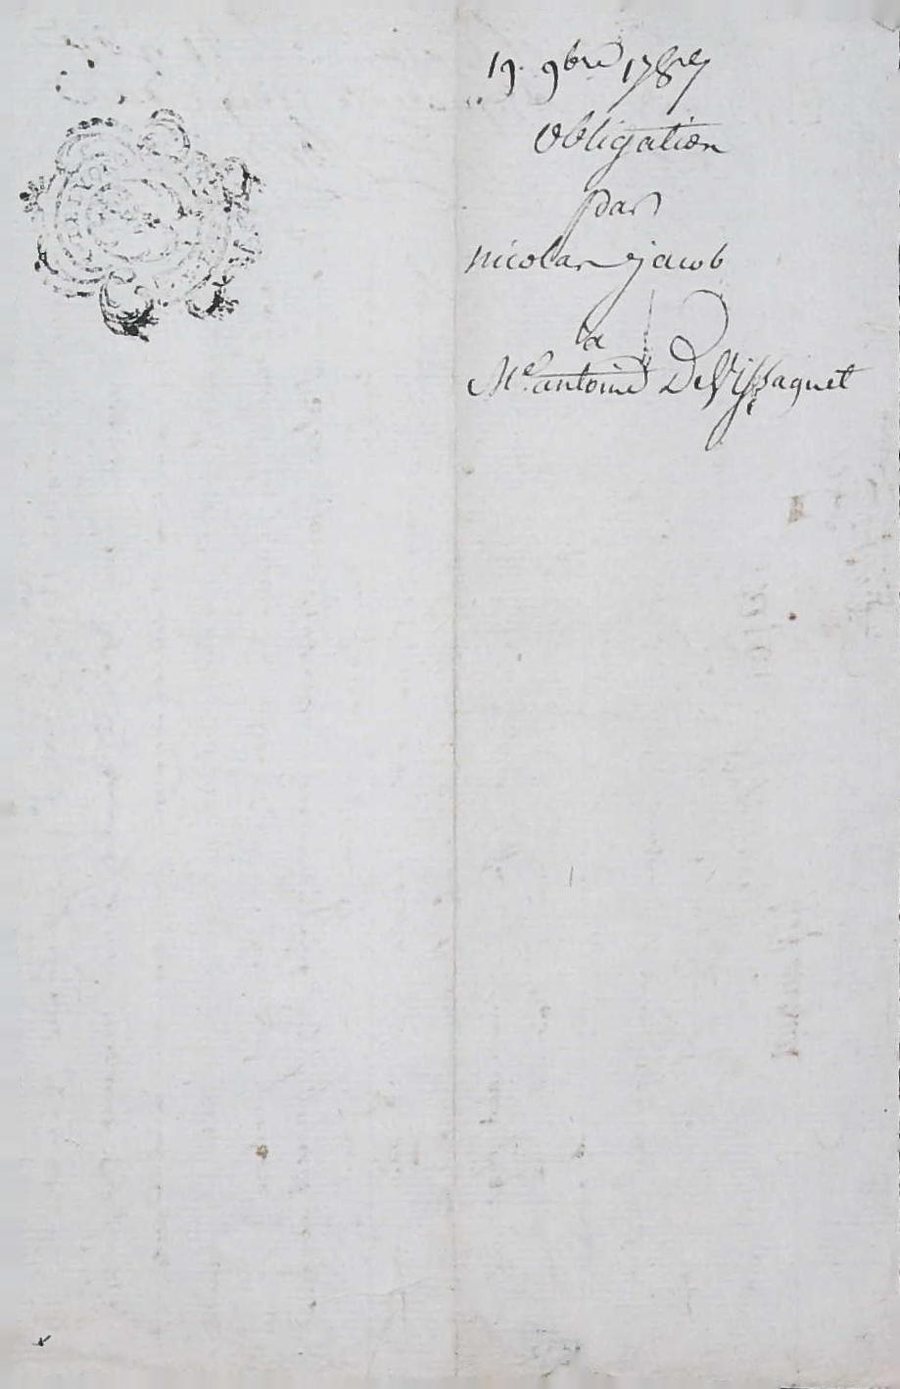 19. 9bre 1787
Obligation
par
nicolas jacob
a
Me. antoine DeVissaguet